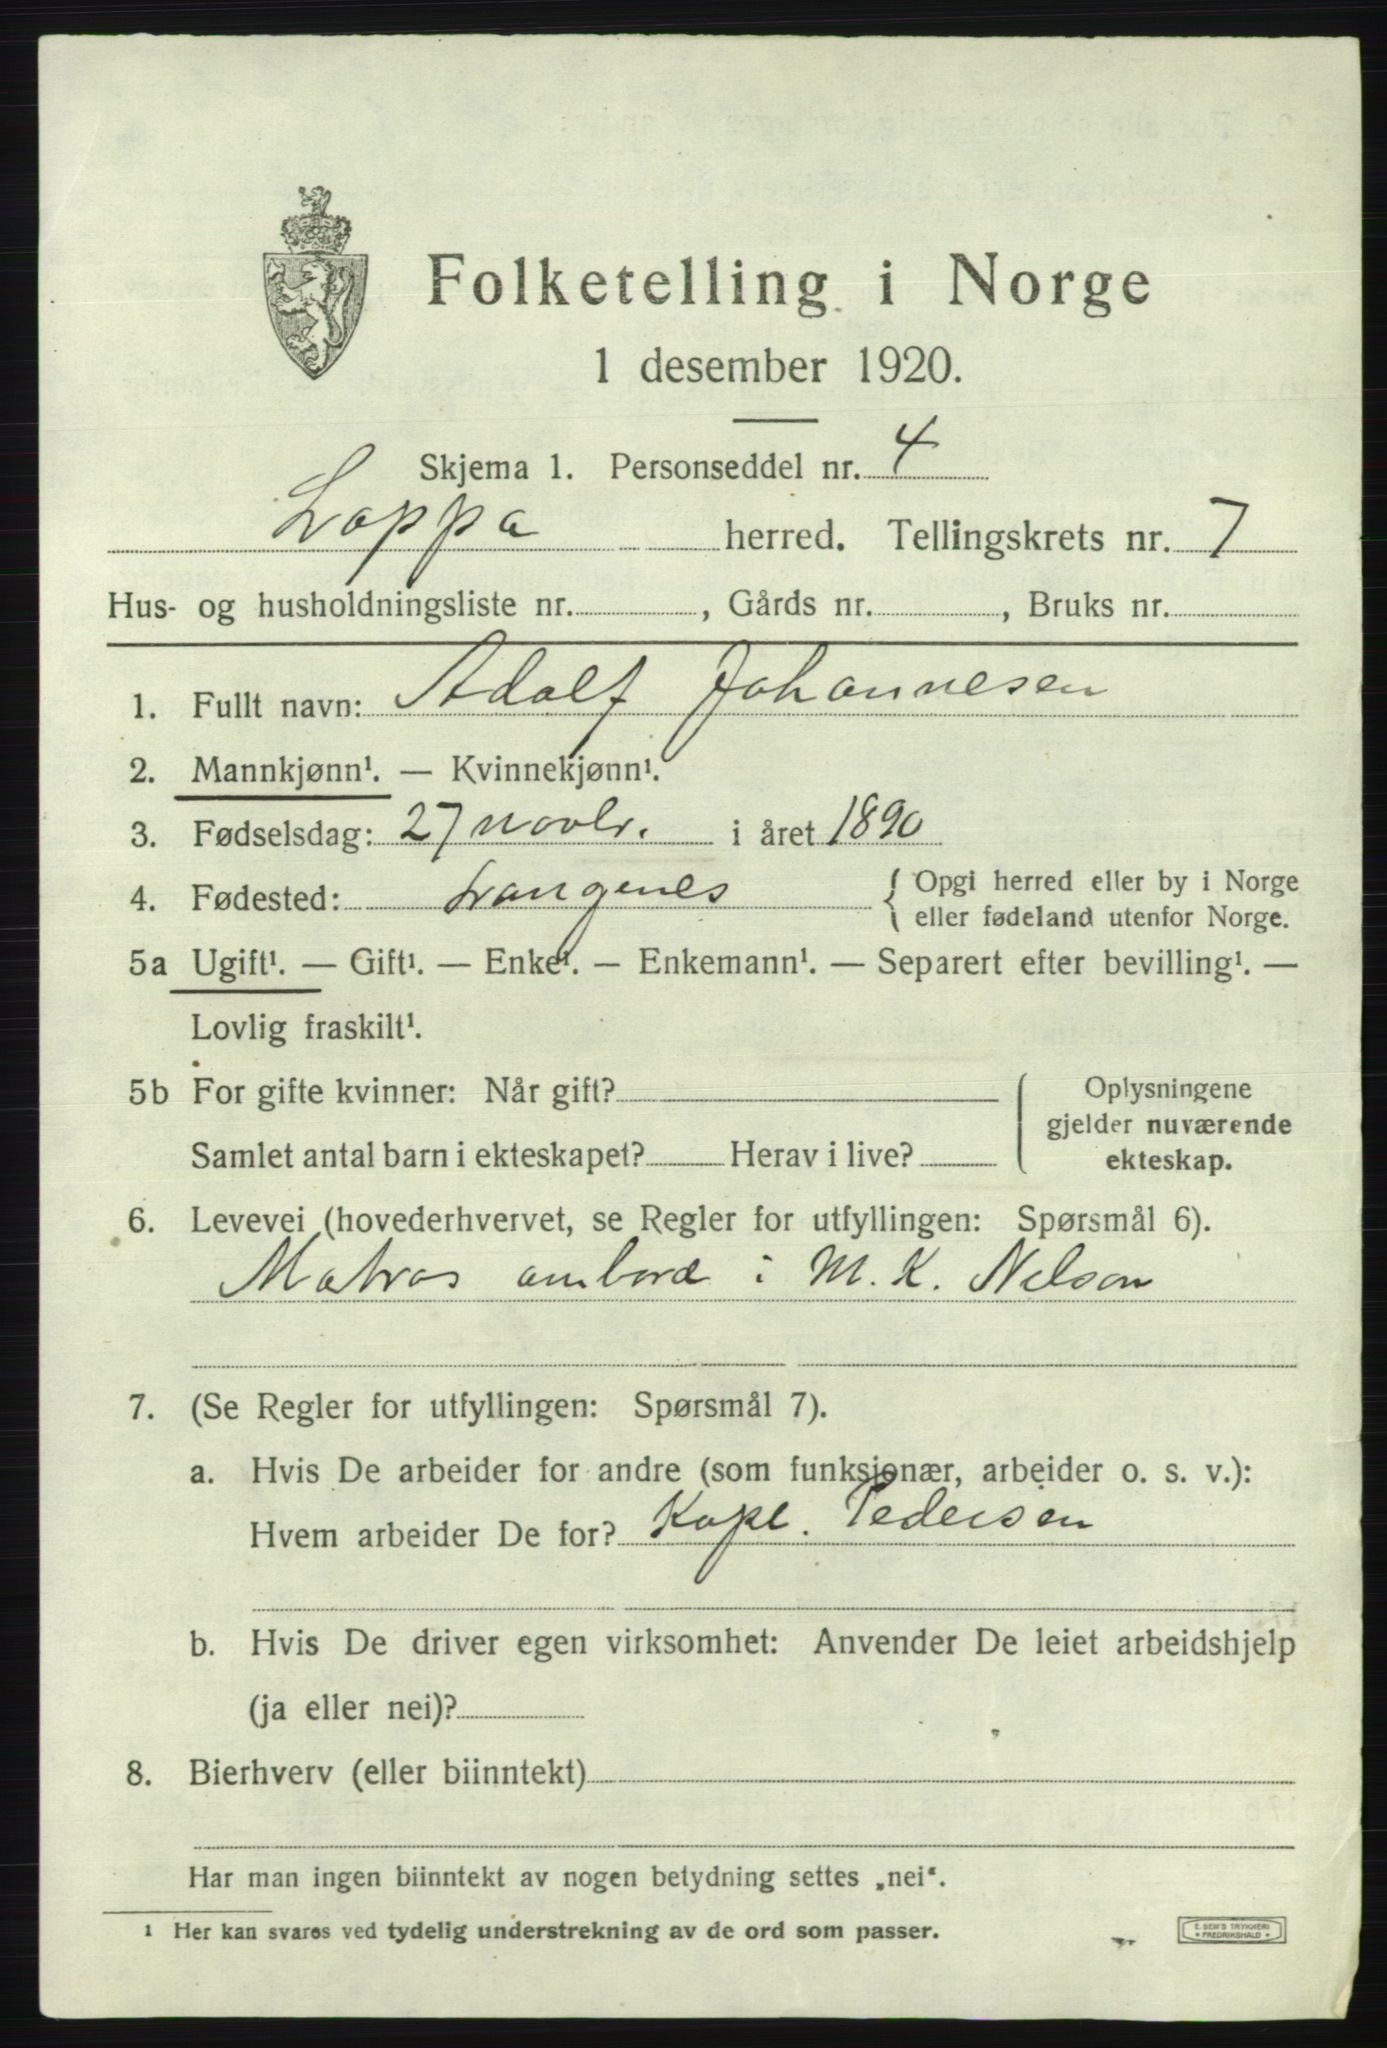 Folketelling i Norge
1 desember 1920.
Skjema 1. Personseddel nr. 4
Loppa herred. Tellingskrets nr. 7
Hus- og husholdningsliste nr. , Gårds nr. , Bruks nr.
1. Fullt navn: Adolf Johannesen
2. Mannkjønn¹. — Kvinnekjønn¹.
3. Fødselsdag: 27 novbr. i året 1890
4. Fødested: Langenes { Opgi herred eller by i Norge
eller fødeland utenfor Norge.
5a Ugift¹. — Gift¹. — Enke¹. — Enkemann¹. — Separert efter bevilling¹. —
Lovlig fraskilt¹.
5b For gifte kvinner: Når gift?
Samlet antal barn i ekteskapet? Herav i live?
Oplysningene
gjelder nuværende
ekteskap.
6. Levevei (hovederhvervet, se Regler for utfyllingen: Spørsmål 6).
Matros ombord i M. K. Nelson
7. (Se Regler for utfyllingen: Spørsmål 7).
a. Hvis De arbeider for andre (som funksjonær, arbeider o. s. v.):
Hvem arbeider De for? Kapt. Pedersen
b. Hvis De driver egen virksomhet: Anvender De leiet arbeidshjelp
(ja eller nei)?
8. Bierhverv (eller biinntekt)
Har man ingen biinntekt av nogen betydning settes „nei“.
¹ Her kan svares ved tydelig understrekning av de ord som passer.
E. SEM'S TRYKKERI
* FREDRIKSHALD *